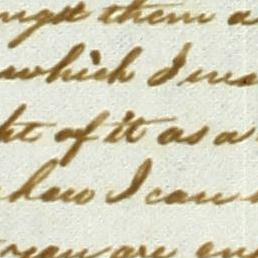 them a
which I was
of it as a
how I can
you are